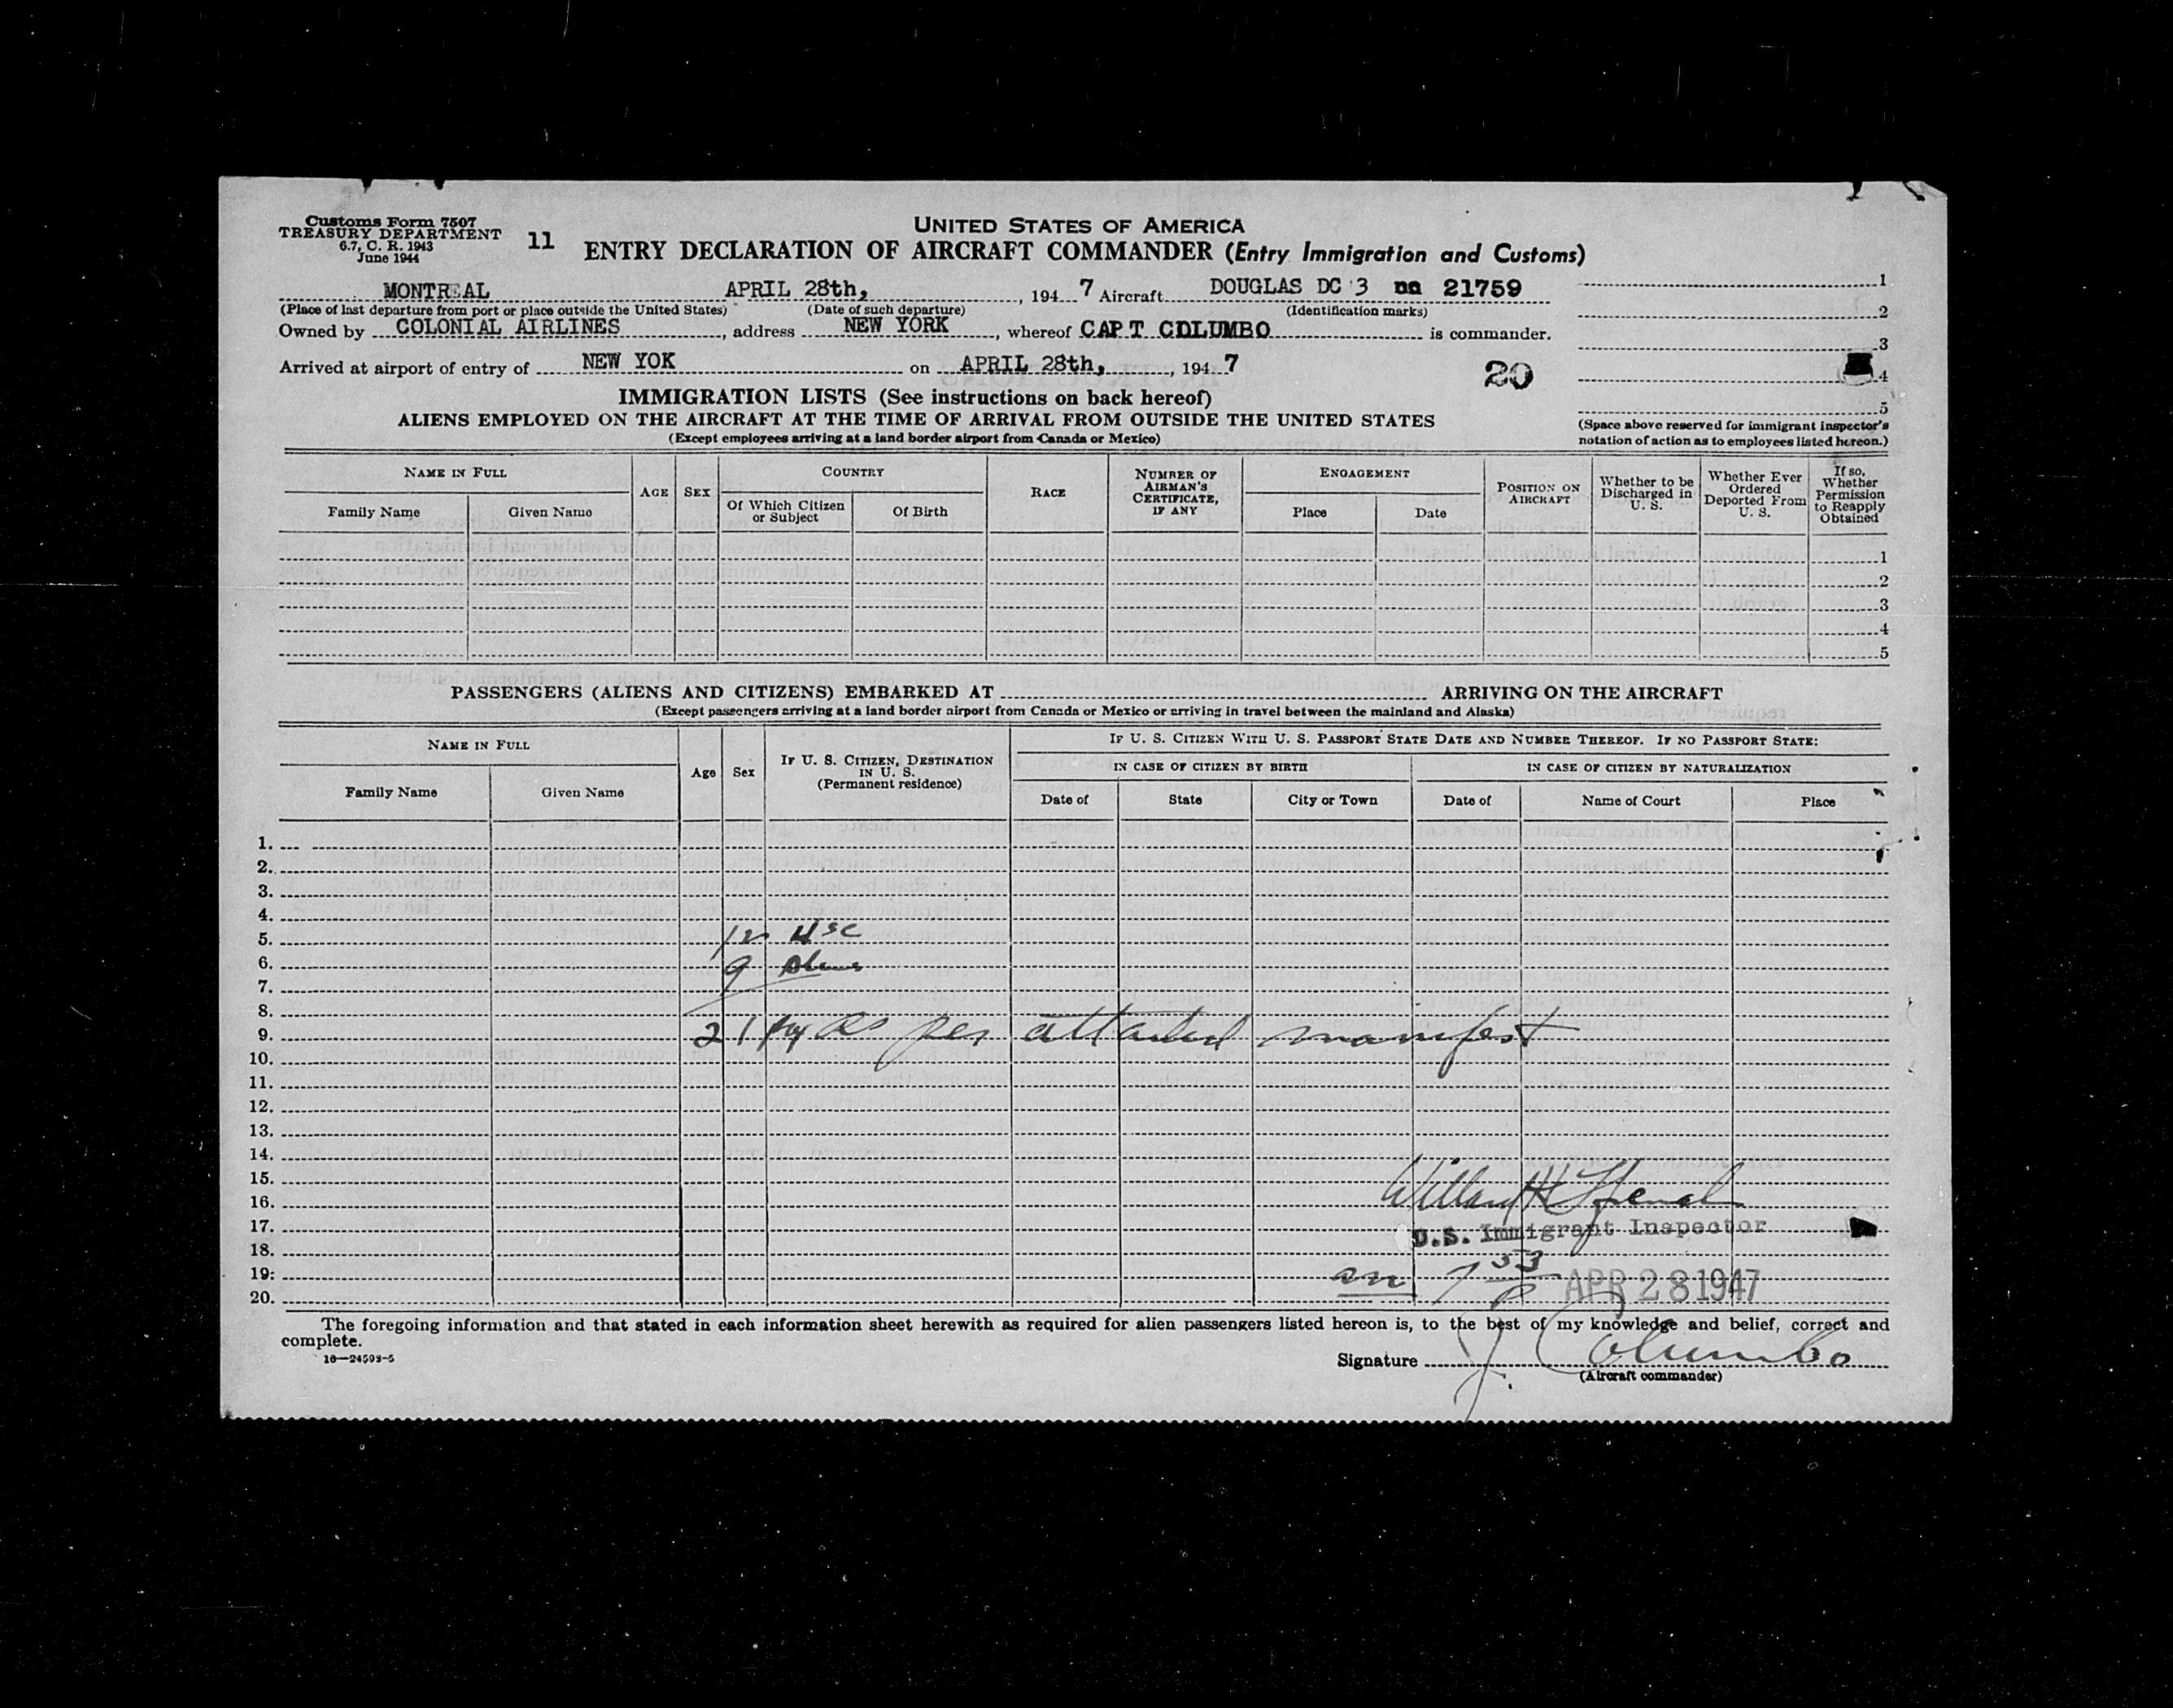 Customs Form 7507
TREASURY DEPARTMENT
6.7, C. R. 1943
June 1944
11
UNITED STATES OF AMERICA
ENTRY DECLARATION OF AIRCRAFT COMMANDER (Entry Immigration and Customs)
MONTREAL APRIL 28th, , 194 7 Aircraft DOUGLAS DC 3 na 21759
(Place of last departure from port or place outside the United States) (Date of such departure) (Identification marks)
Owned by COLONIAL AIRLINES , address NEW YORK , whereof CAPT COLUMBO is commander.
Arrived at airport of entry of NEW YOK on APRIL 28th, , 194 7
20
1
2
3
4
5
(Space above reserved for immigrant inspector's
notation of action as to employees listed hereon.)
IMMIGRATION LISTS (See instructions on back hereof)
ALIENS EMPLOYED ON THE AIRCRAFT AT THE TIME OF ARRIVAL FROM OUTSIDE THE UNITED STATES
(Except employees arriving at a land border airport from Canada or Mexico)
NAME IN FULL
Family Name
Given Name
AGE
SEX
COUNTRY
Of Which Citizen or Subject
Of Birth
RACE
NUMBER OF AIRMAN'S CERTIFICATE, IF ANY
ENGAGEMENT
Place
Date
POSITION ON AIRCRAFT
Whether to be Discharged in U. S.
Whether Ever Ordered Deported From U. S.
If so, Whether Permission to Reapply Obtained
1
2
3
4
5
PASSENGERS (ALIENS AND CITIZENS) EMBARKED AT ARRIVING ON THE AIRCRAFT
(Except passengers arriving at a land border airport from Canada or Mexico or arriving in travel between the mainland and Alaska)
NAME IN FULL
Family Name
Given Name
Age
Sex
IF U. S. CITIZEN, DESTINATION IN U. S.
(Permanent residence)
IF U. S. CITIZEN WITH U. S. PASSPORT STATE DATE AND NUMBER THEREOF. IF NO PASSPORT STATE:
IN CASE OF CITIZEN BY BIRTH
IN CASE OF CITIZEN BY NATURALIZATION
Date of
State
City or Town
Date of
Name of Court
Place
1.
2.
3.
4.
5. 12 USC
6. 9 Aliens
7.
8.
9. 21 as per attached manifest
10.
11.
12.
13.
14.
15.
16.
17. U.S. Immigrant Inspector
18.
19. 7 53
20. APR 28 1947
The foregoing information and that stated in each information sheet herewith as required for alien passengers listed hereon is, to the best of my knowledge and belief, correct and
complete.
16—24593-5
Signature J. Columbo
(Aircraft commander)